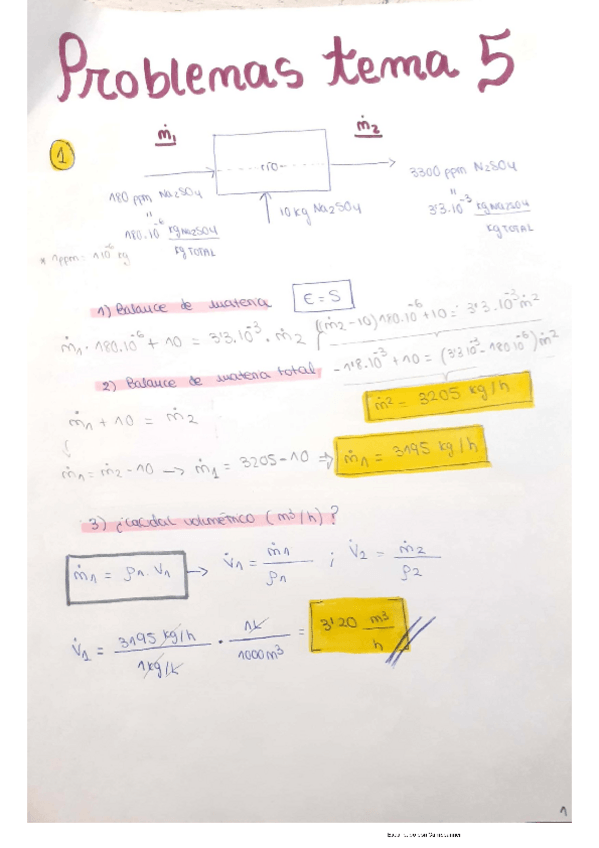 Problemas tema 5
1
ṁ₁
ṁ₂
río
180 ppm Na₂SO₄
"
180·10⁻⁶ kg Na₂SO₄ / kg TOTAL
10 kg Na₂SO₄
3300 ppm Na₂SO₄
"
3'3·10⁻³ kg Na₂SO₄ / kg TOTAL
* 1ppm = 1·10⁻⁶ kg
1) Balance de materia
E = S
ṁ₁·180·10⁻⁶ + 10 = 3'3·10⁻³·ṁ₂
(ṁ₂-10)180·10⁻⁶ + 10 = 3'3·10⁻³ ṁ²
-1'8·10⁻³ + 10 = (3'3·10⁻³ - 180·10⁻⁶) ṁ²
2) Balance de materia total
ṁ² = 3205 kg/h
ṁ₁ + 10 = ṁ₂
ṁ₁ = ṁ₂ - 10 → ṁ₁ = 3205 - 10 ⇒ ṁ₁ = 3195 kg/h
3) ¿Caudal volumétrico (m³/h)?
ṁ₁ = ρ₁·V₁ → V̇₁ = ṁ₁ / ρ₁ ; V̇₂ = ṁ₂ / ρ₂
V̇₁ = 3195 kg/h / 1kg/L · 1L / 1000m³ = 3'20 m³/h
1